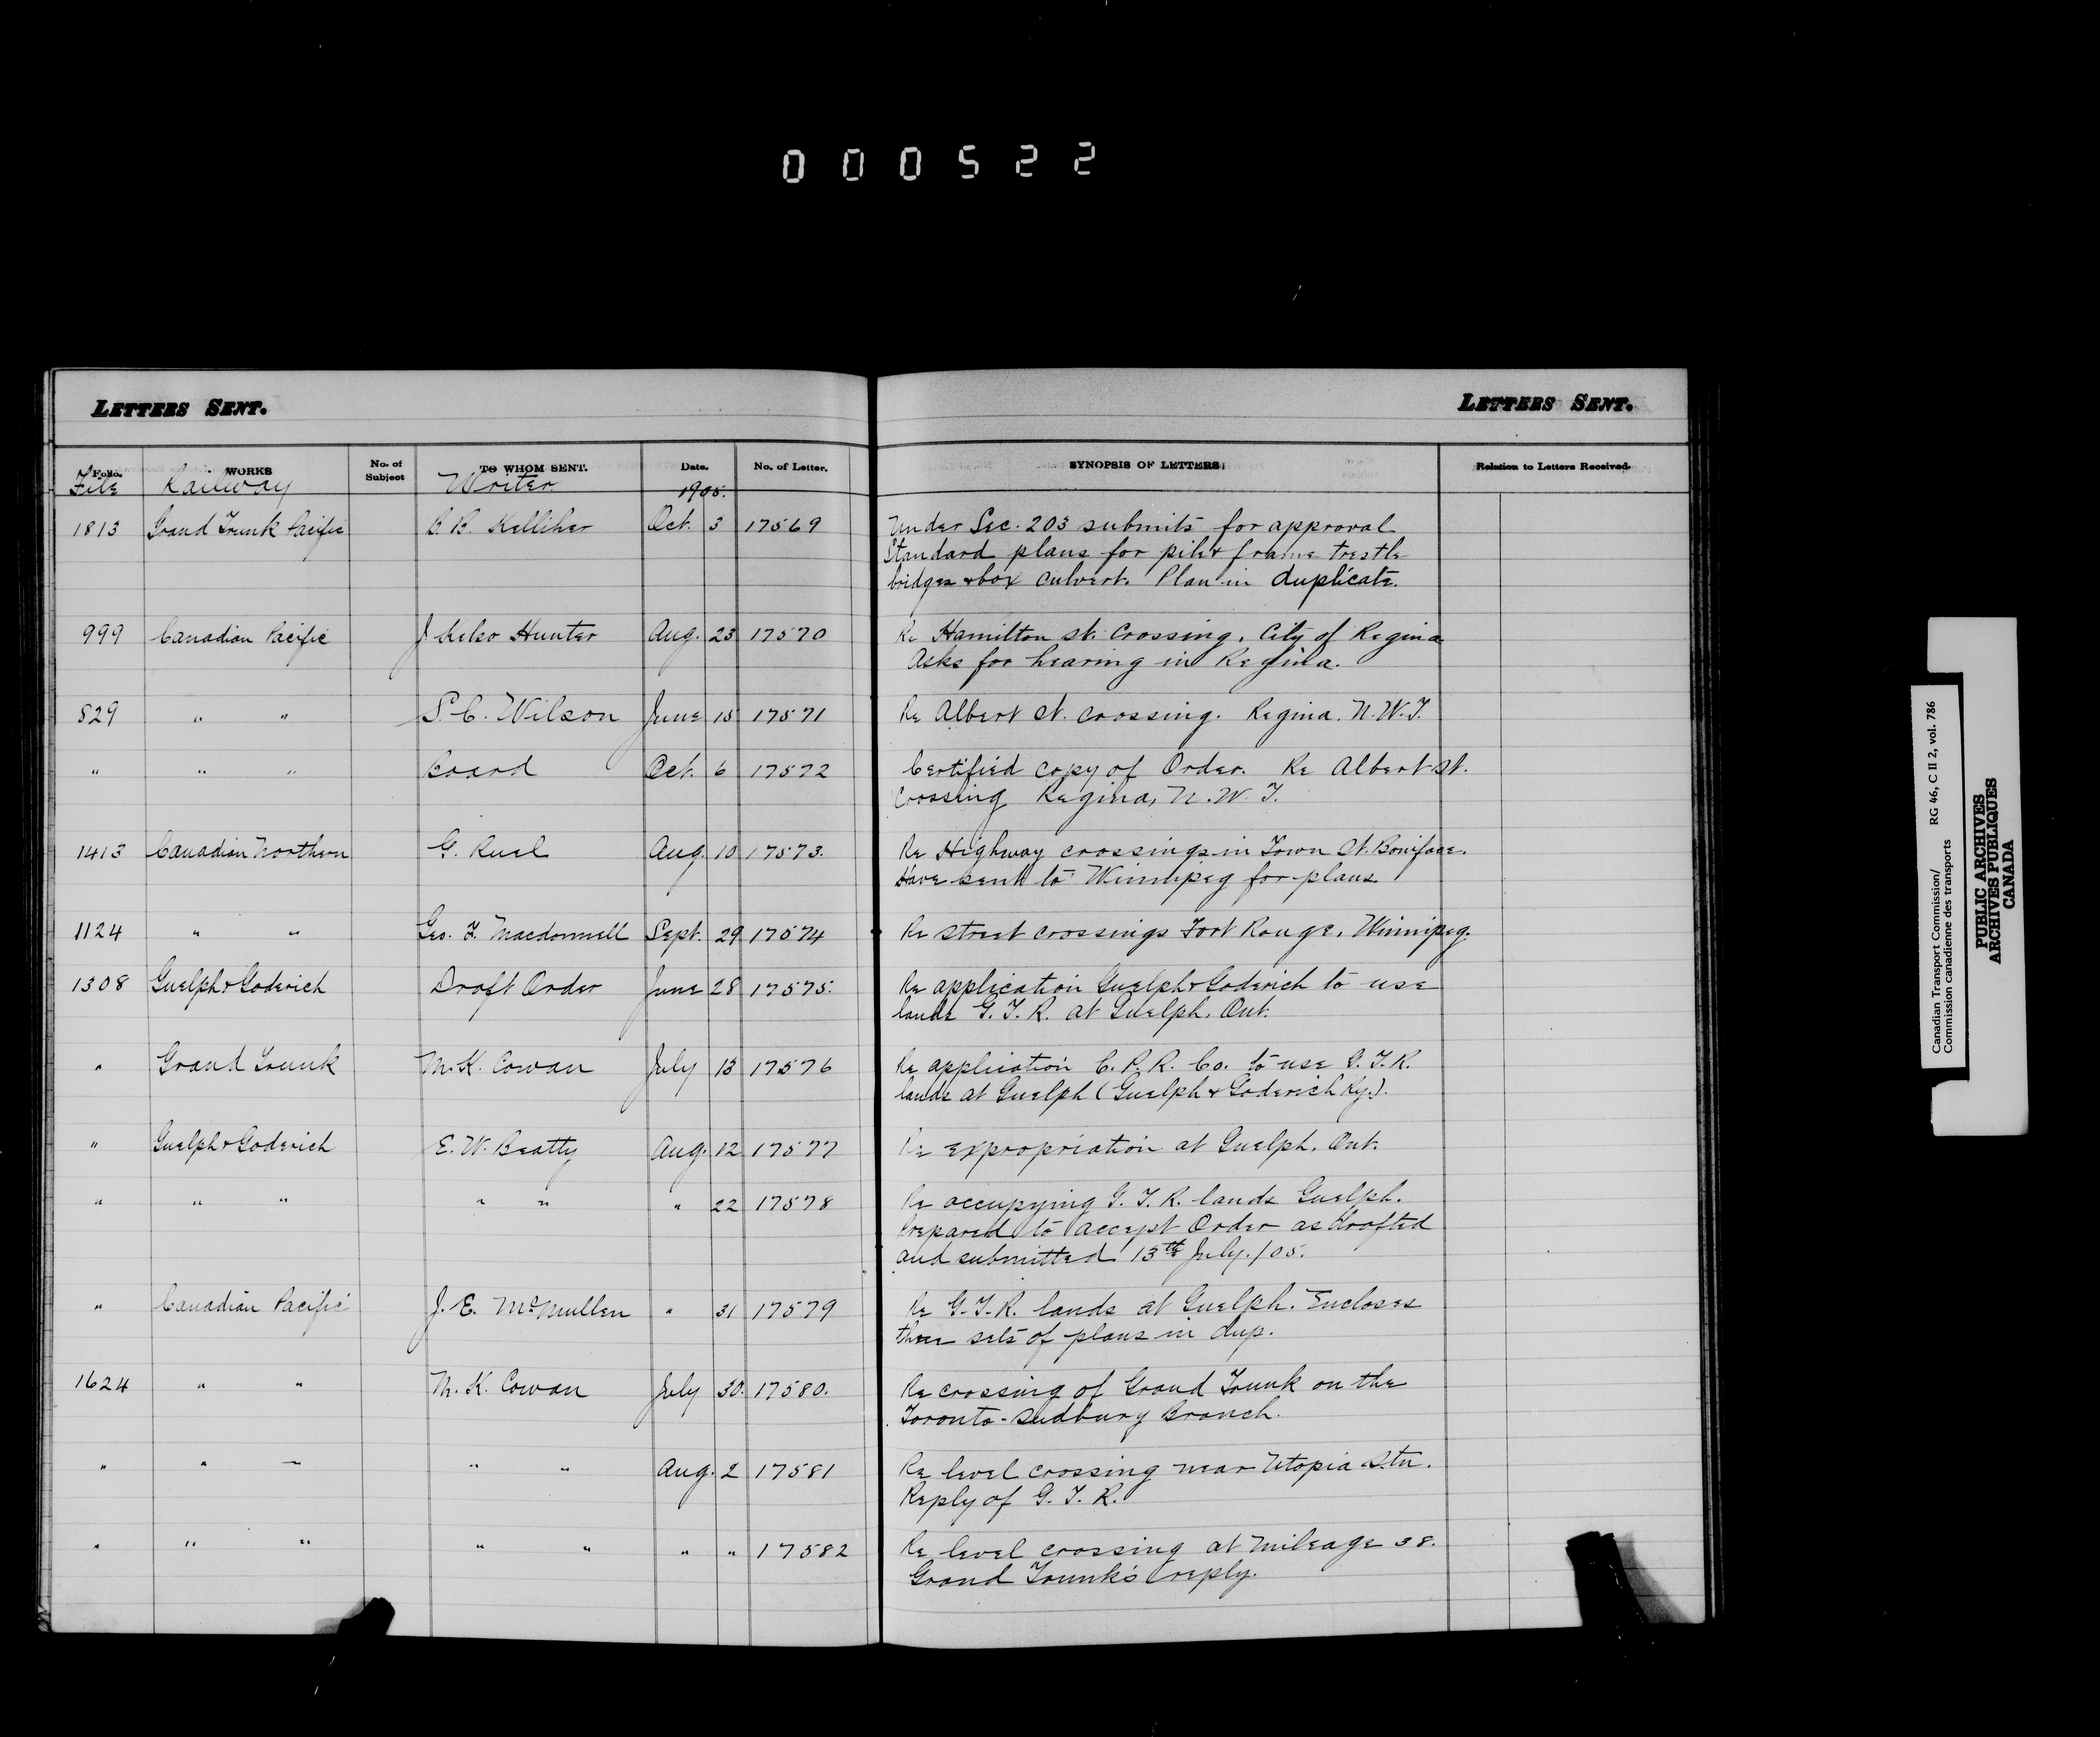 000522
LETTERS SENT.
LETTERS SENT.
Folio. WORKS No. of Subject TO WHOM SENT. Date. No. of Letter. SYNOPSIS OF LETTERS. Relation to Letters Received.
File Railway Writer 1905.
1813 Grand Trunk Pacific B. B. Kelliher Oct. 3 17569 Under Sec. 203 submits for approval
Standard plans for pile & frame trestle
bridges & box culvert. Plan in duplicate.
999 Canadian Pacific J Kelso Hunter Aug. 23 17570 Re Hamilton St. Crossing, City of Regina
Asks for hearing in Regina.
829 " " S. C. Wilson June 15 17571 Re Albert St. crossing. Regina. N.W.T.
" " " Board Oct. 6 17572 Certified copy of Order. Re Albert St.
Crossing Regina, N.W.T.
1413 Canadian Northern G. Ruel Aug. 10 17573. Re Highway crossings in Town St. Boniface.
Have sent to Winnipeg for plans
1124 " " Geo. F. Macdonnell Sept. 29 17574 Re street crossings Fort Rouge, Winnipeg.
1308 Guelph & Goderich Draft Order June 28 17575. Re application Guelph & Goderich to use
lands G.T.R. at Guelph, Ont.
" Grand Trunk M. K. Cowan July 13 17576 Re application C.P.R. Co. to use G.T.R.
lands at Guelph (Guelph & Goderich Ry.).
" Guelph & Goderich E. W. Beatty Aug. 12 17577 Re expropriation at Guelph, Ont.
" " " " " " 22 17578 Re occupying G.T.R. lands Guelph.
Prepared to accept Order as drafted
and submitted 13th July/05.
" Canadian Pacific J. E. McMullen " 31 17579 Re G.T.R. lands at Guelph. Encloses
three sets of plans in dup.
1624 " " M. K. Cowan July 30. 17580. Re crossing of Grand Trunk on the
Toronto-Sudbury Branch.
" " " " " Aug. 2 17581 Re level crossing near Utopia Stn.
Reply of G.T.R.
" " " " " " " 17582 Re level crossing at Mileage 38.
Grand Trunk's reply.
Canadian Transport Commission/ RG 46, C II 2, vol. 786
Commission canadienne des transports
PUBLIC ARCHIVES
ARCHIVES PUBLIQUES
CANADA